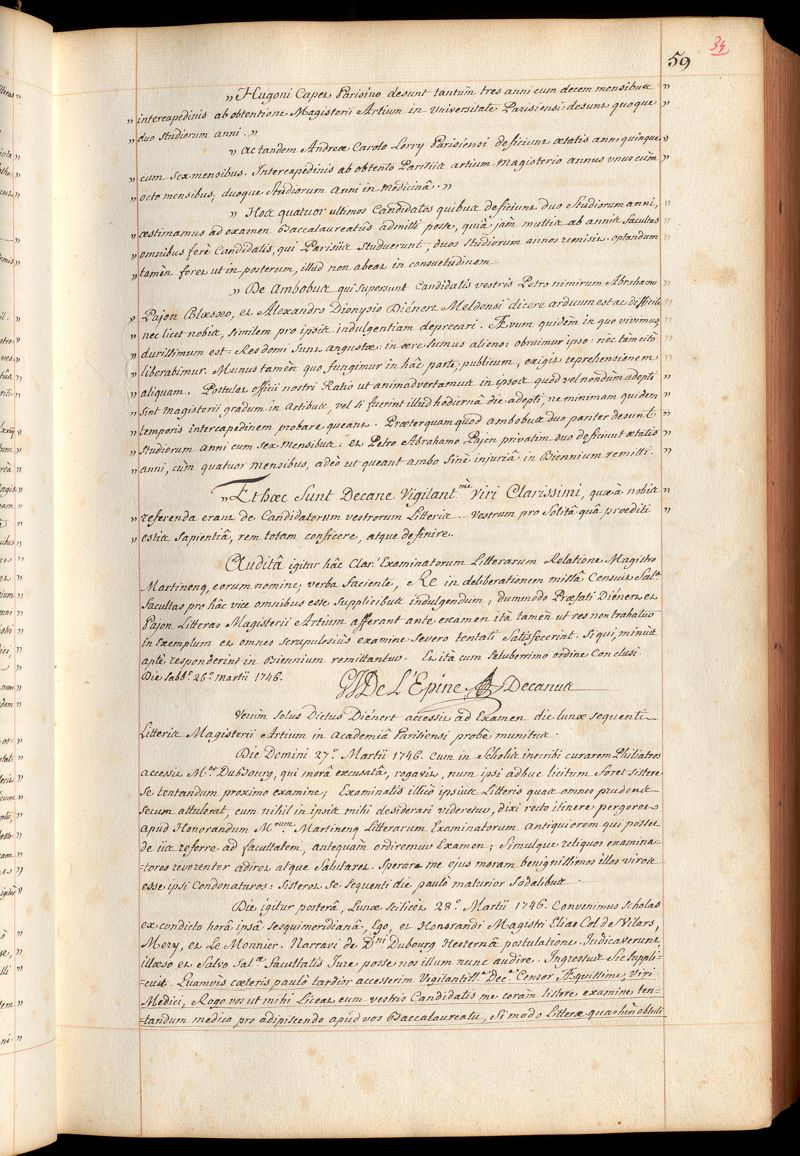 59
34
„ Hugoni Capet Parisino desunt tantùm tres anni cum decem mensibus „
„ intercapedinis ab obtentione Magisterii Artium in Universitate Parisiensi: desunt quoque „
„ duo studiorum anni. „
„ Ac tandem Andreæ Carolo Lorry Parisiensi deficiunt ætatis anni quinque „
„ cum sex mensibus. Intercapedinis ab obtento Parisiis artium magisterio annus unus cùm „
„ octo mensibus, duoque Studiorum Anni in medicinâ. „
„ Hos quatuor ultimos Candidatos quibus deficiunt duo Studiorum anni, „
„ æstimamus ad examen Baccalaureatûs admitti posse, quià jàm multis ab annis facultas „
„ omnibus ferè Candidatis, qui Parisiis Studuerunt, duos studiorum annos remisit. optandum „
„ tamèn foret ut in posterum, illud non abeat in consuetudinem „
„ De Ambobus qui supersunt Candidatis vestris Petro nimirum Abrahamo „
„ Pajon Blæsæo, et Alexandro Dionysio Diénert Meldensi dicere arduum est ac difficile „
„ nec licet nobis, similem pro ipsis indulgentiam deprecari. Ævum quidèm in quo vivimus „
„ durissimum est: Res domi Sunt angustæ: in ære sumus alieno: obruimur ipso: nèc tàm citò „
„ liberabimur. Munus tamèn quo, fungimur in hâc parte, publicum, exigit reprehensionem „
„ aliquam. Postulat officii nostri Ratio ut animadvertamus in ipsos quod vel nondùm adepti „
„ sint magisterii, gradum in Artibus, vel si fuerint illud hodiernâ die adepti, ne minimam quidem „
„ temporis intercapedinem probare queant. Præterquam quod ambobus duo pariter desunt „
„ Studiorum anni cum sex mensibus: et Petro Abrahamo Pajon privatim duo deficiunt ætatis „
„ anni, cùm quatuor mensibus, adeò ut queant ambo Sinè injuriâ in Biennium remitti. „
„ Et hæc Sunt Decane Vigilant.me Viri Clarissimi, quæ à nobis „
„ referenda erant de Candidatorum vestrorum Litteris. Vestrum pro Solitâ quâ præditi „
„ estis Sapientiâ, rem totam conficere, atque definire. „
Auditâ igitur hâc Clar. Examinatorum Litterarum Relatione Magistro
Martinenq, eorum nomine, verba faciente, et Re in deliberationem missâ Censuit Sal.a
facultas pro hâc vice omnibus esse supplicibus indulgendum, dummodo Præfati Diénert et
Pajon Litteras Magisterii Artium afferant ante examen ità tamèn ut res non trahatur
in Exemplum et omnes scrupulosiùs examine severo tentati Satisfecerint. Si qui, minùs
aptè responderint in Biennium remittantur. Et ità cum saluberrimo ordine Conclusi
Die Sabb.o 26.o martii 1746.
GJ De L'Epine Decanus
Verùm solus Dictus Diénert accessit ad Examen die lunæ sequenti
Litteris Magisterii Artium in Academiâ Parisiensi probè munitus.
Die Domini 27.o Martii 1746. Cum in Scholis inscribi curarem Philiatros
accessit M.er Dubourg, qui morâ excusatâ, rogavit, num ipsi adhuc licitum foret sistere
se tentandum proximo examine; Examinatis illicò ipsius Litteris quas omnes prudens
secum attulerat, cum nihil in ipsis mihi desiderari videretur, dixi recto itinere pergeret
apud Honorandum M.rum Martinenq Litterarum Examinatorum Antiquiorem qui posset
de iis referre ad facultatem, antequàm ordiremur Examen; Simulque reliquos examina-
-tores reverenter adiret atque Salutaret. Sperare me ejus moram benignissimos illos viros
esse ipsi Condonaturos: Sisteret se sequenti die paulò maturior Sodalibus.
Die igitur posterâ, Lunæ scilicet 28.o Martii 1746. Convenimus Scholas
ex condicto horâ ipsâ sesquimeridianâ, Ego, et Honorandi Magistri Elias Col de Vilars,
Mery, et Le Monnier. Narravi de D.ni Dubourg Hesternâ postulatione. Judicaverunt,
illæso et Salvo Sal.æ facultatis Jure posse nos illum nunc audire. Ingressus Sic suppli-
-cuit. Quamvis cæteris paulò tardior accesserim Vigilantiss.e Dec.e Censor Æquissime, Viri
Medici, Rogo vos ut mihi Liceat cum vestris Candidatis me coràm sistere examine ten-
-tandum medico pro adipiscendo apud vos Baccalaureatu, Si modò Litteræ quas hêri obtuli